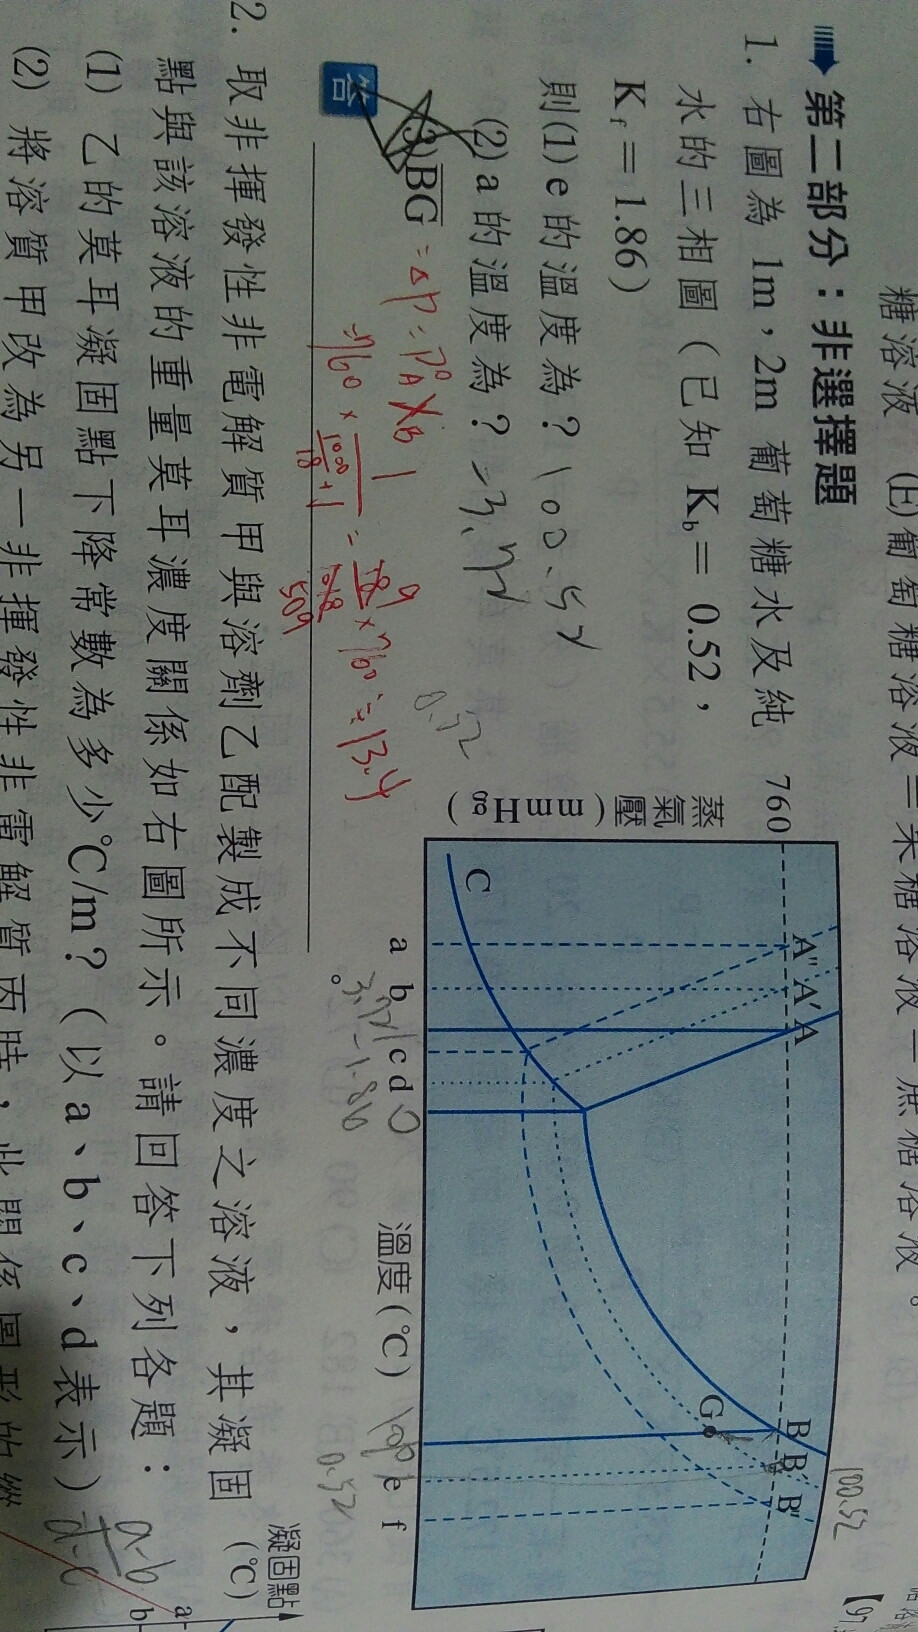 糖溶液 (E)葡萄糖溶液=果糖溶液=蔗糖溶液。
第二部分：非選擇題
1. 右圖為 1m，2m 葡萄糖水及純
水的三相圖（已知 Kb = 0.52，
Kf = 1.86）
則(1) e 的溫度為？100.52
(2) a 的溫度為？-3.72
(3) BG = ΔP = P°A XB
= 760 × 1/(1000/18 + 1) = 18/1018 × 760 ≒ 13.4
9
509
0.52
答
蒸氣壓(mmHg)
760
A" A' A
B B' B"
C
G
100.52
a b c d e f
-3.72 -1.86 0
100
0.52
溫度(°C)
2. 取非揮發性非電解質甲與溶劑乙配製成不同濃度之溶液，其凝固
點與該溶液的重量莫耳濃度關係如右圖所示。請回答下列各題：
(1) 乙的莫耳凝固點下降常數為多少°C/m？（以 a、b、c、d 表示）
a-b/d-c
(2) 將溶質甲改為另一非揮發性非電解質丙時，此關係圖形的縱
凝固點
(°C)
a
b